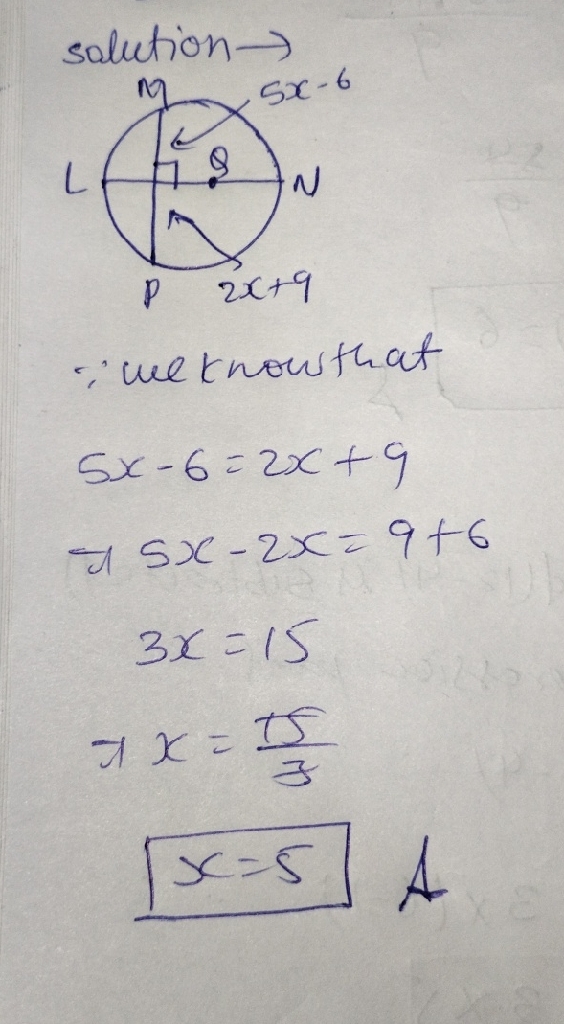 solution →
M 5x-6
L Q N
P 2x+9
∵ we know that
5x-6=2x+9
⇒ 5x-2x=9+6
3x=15
⇒ x=15/3
x=5 A